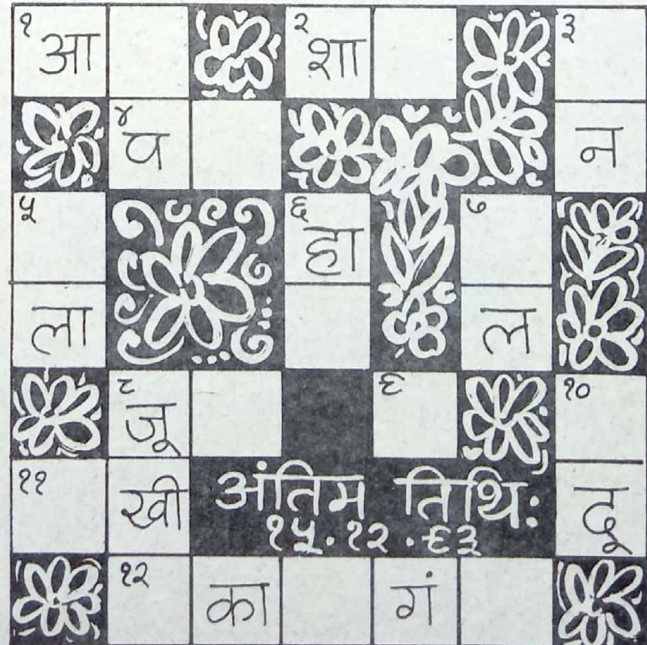 १ आ २ शा ३
४ प न
५ ६ हा ७
ला ल
८ जू ९ १०
११ खी अंतिम तिथि: दू
१५.१२.९३
१२ का गं